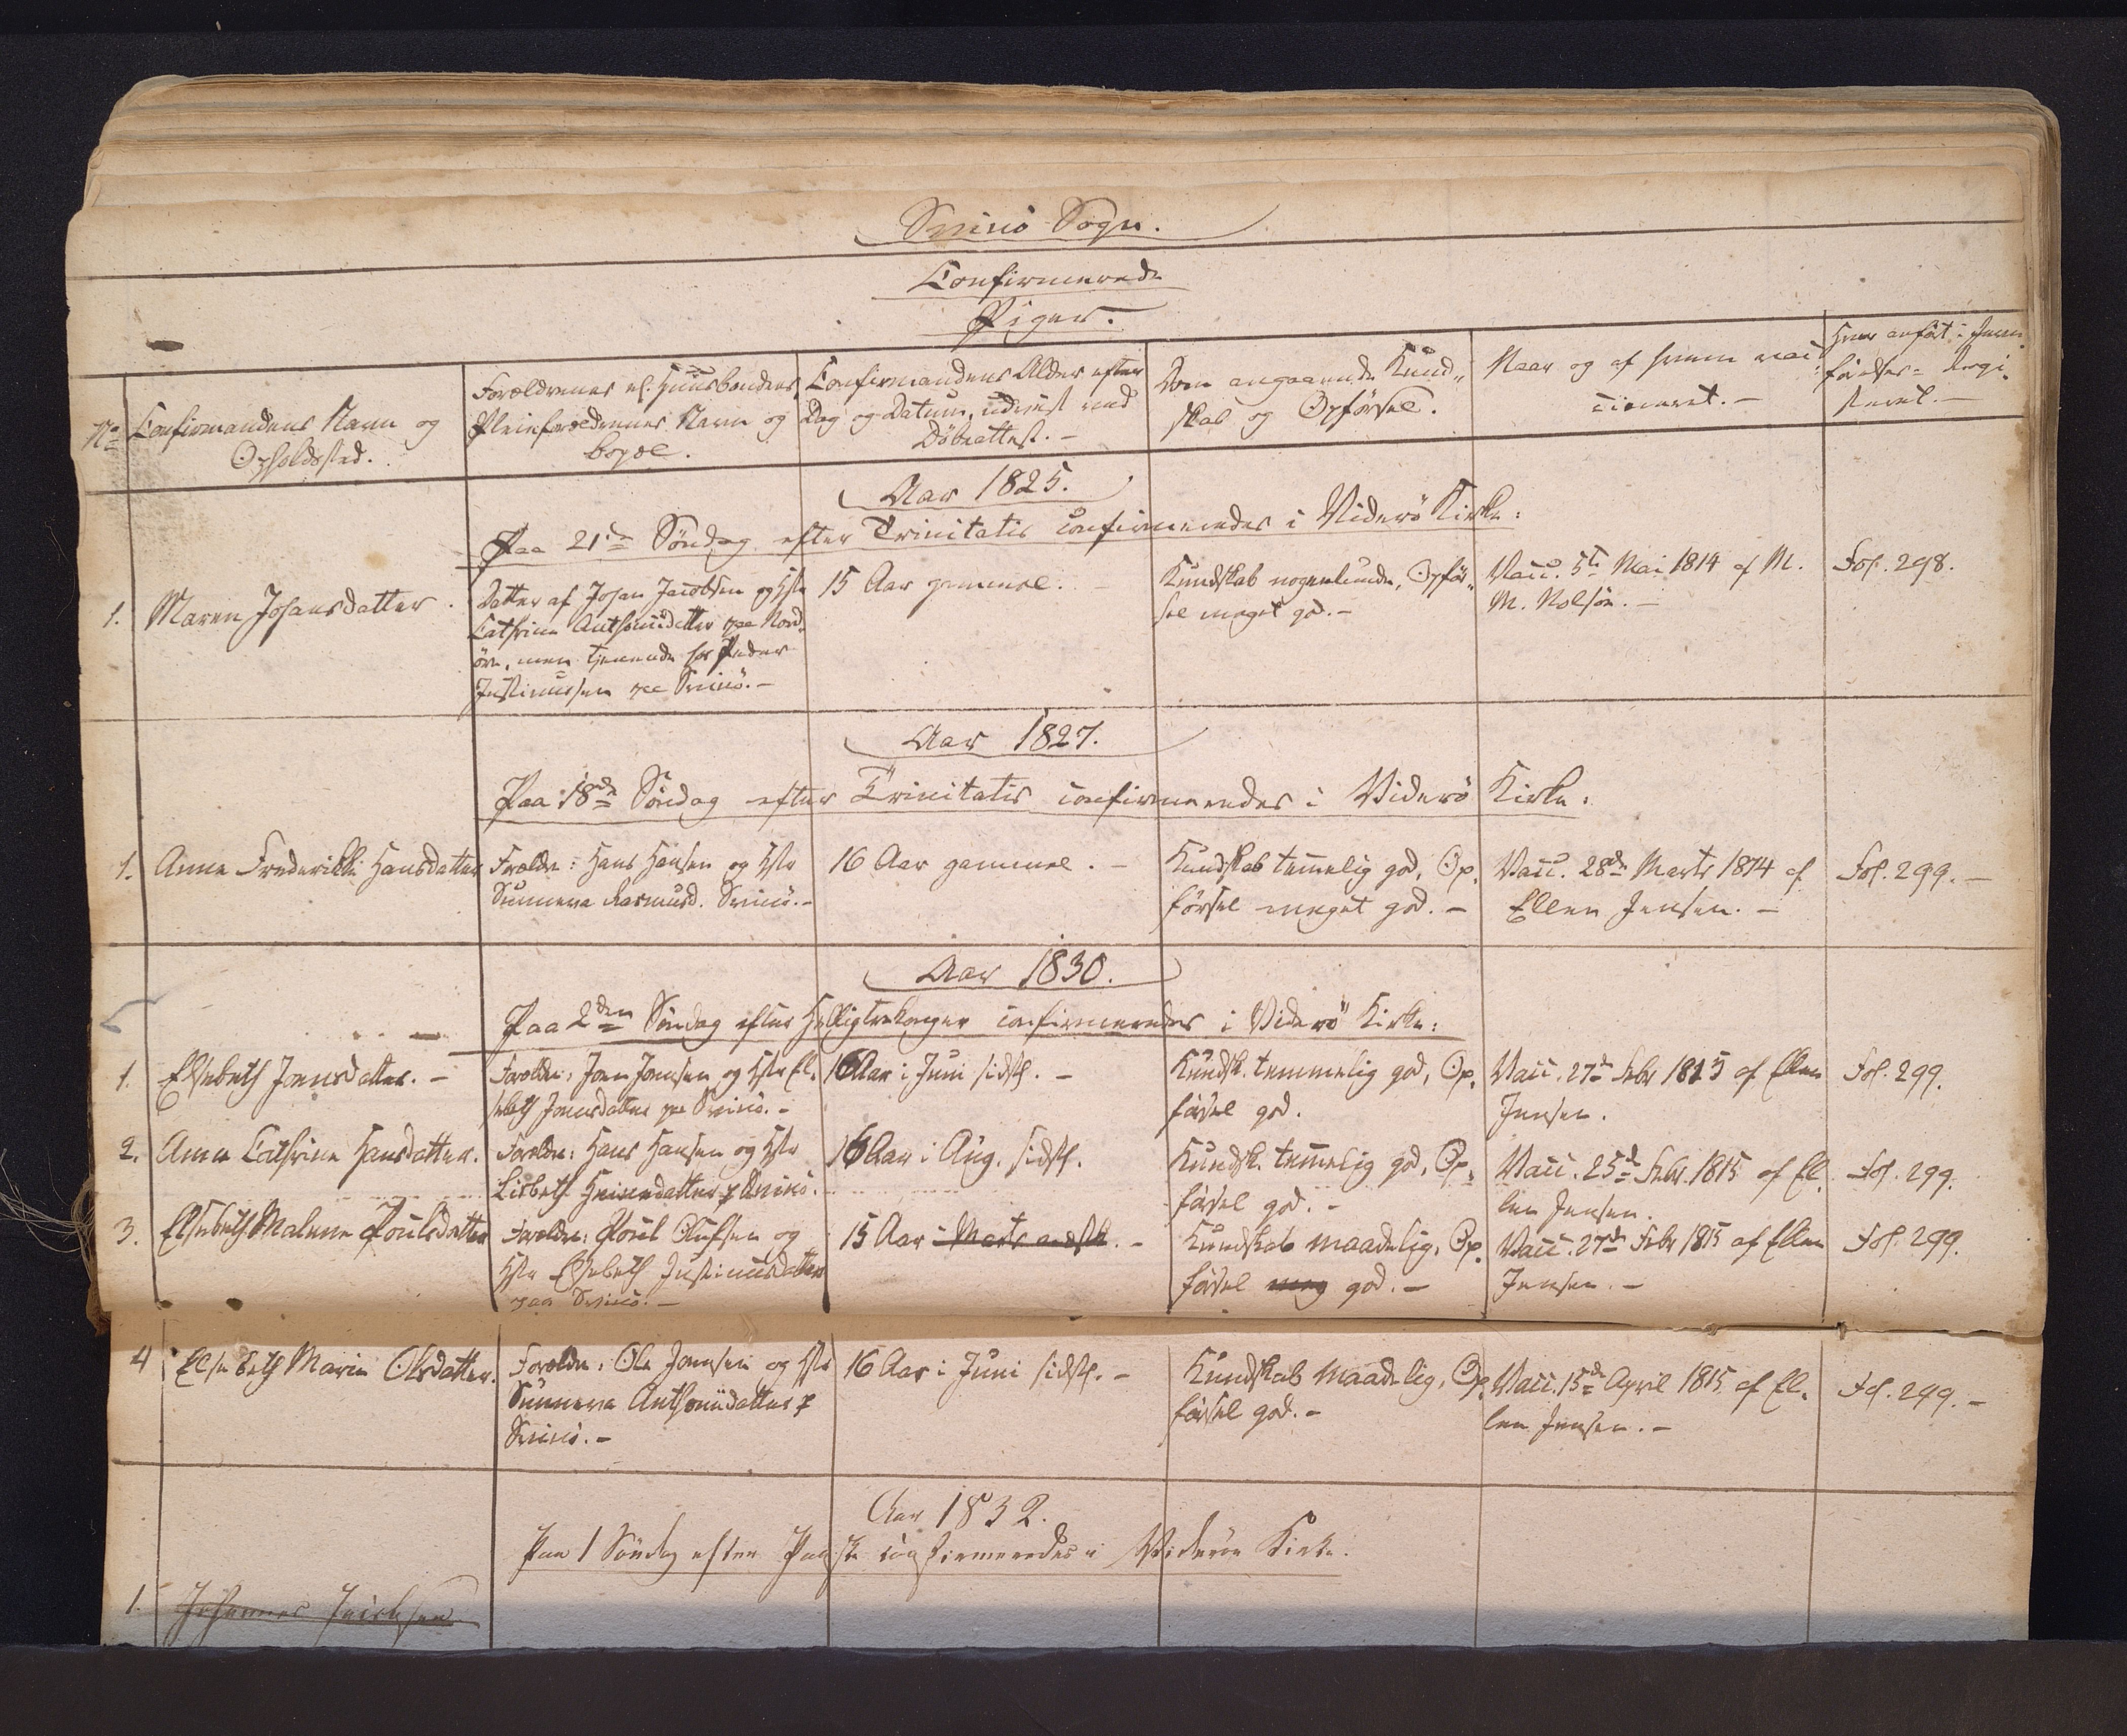 Svinö Sogn.
Confirmerede
Piger.
No
Confirmandens Navn og
Opholdssted.
Forældrenes el. Huusbondens,
Pleieforældrenes Navn og
Bopæl.
Confirmandens Alder efter
Dag og Datum, udviist ved
Döbeattest. -
Dom angaaende Kund„
skab og Opførsel.
Naar og af hvem vac„
cineret. -
Hvor anført i Jevn
førelses= Regi„
steret. -
Aar 1825.
Paa 21de Söndag efter Trinitatis confirmeredes i Viderö Kirke:
1.
Maren Johansdatter.
Datter af Johan Jacobsen og Hstr
Cathrine Anthoniidatter paa Nord„
öre, men tjenende hos Peder
Justinussen paa Svinö. -
15 Aar gammel. -
Kundskab nogenlunde, Opför„
sel meget god. -
Vacc. 5te Mai 1814 af M.
M. Nolsöe. -
Fol. 298.
Aar 1827.
Paa 18de Söndag efter Trinitatis confirmeredes i Viderö Kirke:
1.
Anna Frederikke Hansdatter
Forældre: Hans Hansen og Hstr
Sunneva Rasmusd. Svinö. -
16 Aar gammel. -
Kundskab temelig god, Op„
førsel meget god. -
Vacc. 28de Marts 1814 af
Ellen Jensen. -
Fol. 299. -
Aar 1830.
Paa 2den Söndag efter Helligtrekonger confirmeredes i Viderö Kirke:
1.
Elsebeth Joensdatter. -
Forældre: Joen Joensen og Hstr El„
sebeth Joensdatter paa Svinö. -
16 Aar i Juni sidstl. -
Kundsk. temmelig god, Op„
førsel god.
Vacc. 27de Febr 1815 af Ellen
Jensen.
Fol. 299.
2.
Anna Cathrine Hansdatter.
Forældre: Hans Hansen og Hstr
Lisbeth Heinesdatter p Svinö.
16 Aar i Aug. sidstl.
Kundsk. temelig god, Op„
førsel god. -
Vacc. 25de Febr. 1815 af El„
len Jensen.
Fol. 299.
3.
Elsebeth Malene Poulsdatter
Forældre: Poul Olufsen og
Hstr Elsebeth Justinusdatter
paa Svinö. -
15 Aar i Marts sidstl. -
Kundskab maadelig, Op„
førsel meg god. -
Vacc. 27de Febr 1815 af Ellen
Jensen. -
Fol. 299.
4
Elsebeth Marie Olsdatter.
Forældre: Ole Joensen og Hstr
Sunneva Anthoniidatter p
Svinö. -
16 Aar i Juni sidstl. -
Kundskab maadelig, Op„
førsel god. -
Vacc. 15de April 1815 af El„
len Jensen. -
Fol. 299. -
Aar 1832.
Paa 1 Söndag efter Paaske confirmeredes i Viderøe Kirke.
1.
Johannes